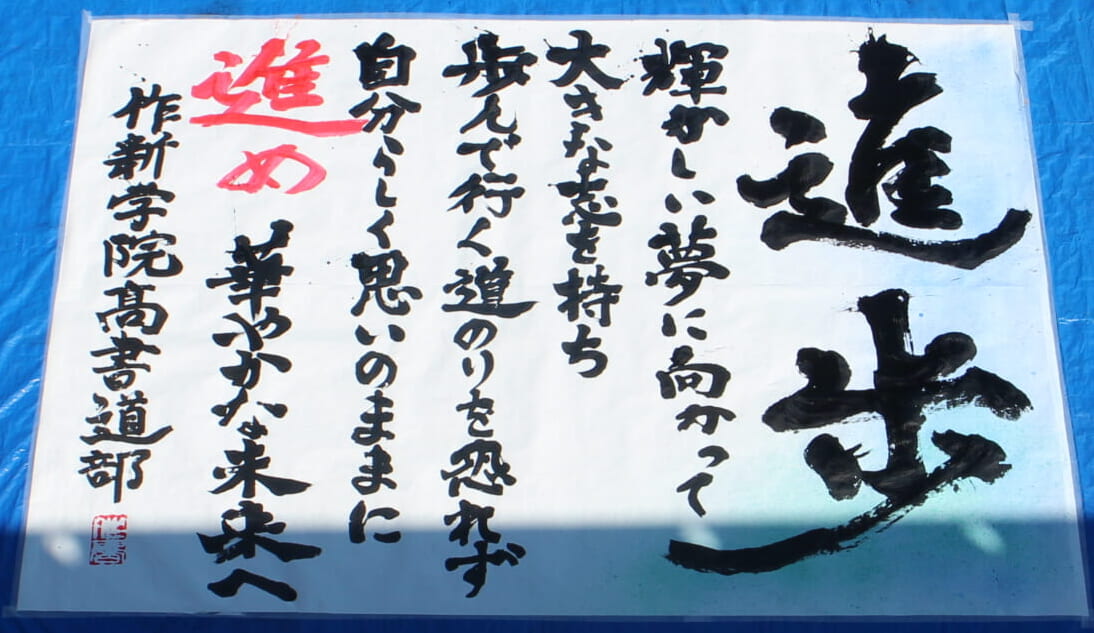 進歩
輝かしい夢に向かって
大きな志を持ち
歩んで行く道のりを恐れず
自分らしく思いのままに
進め 華やかな未来へ
作新学院高書道部